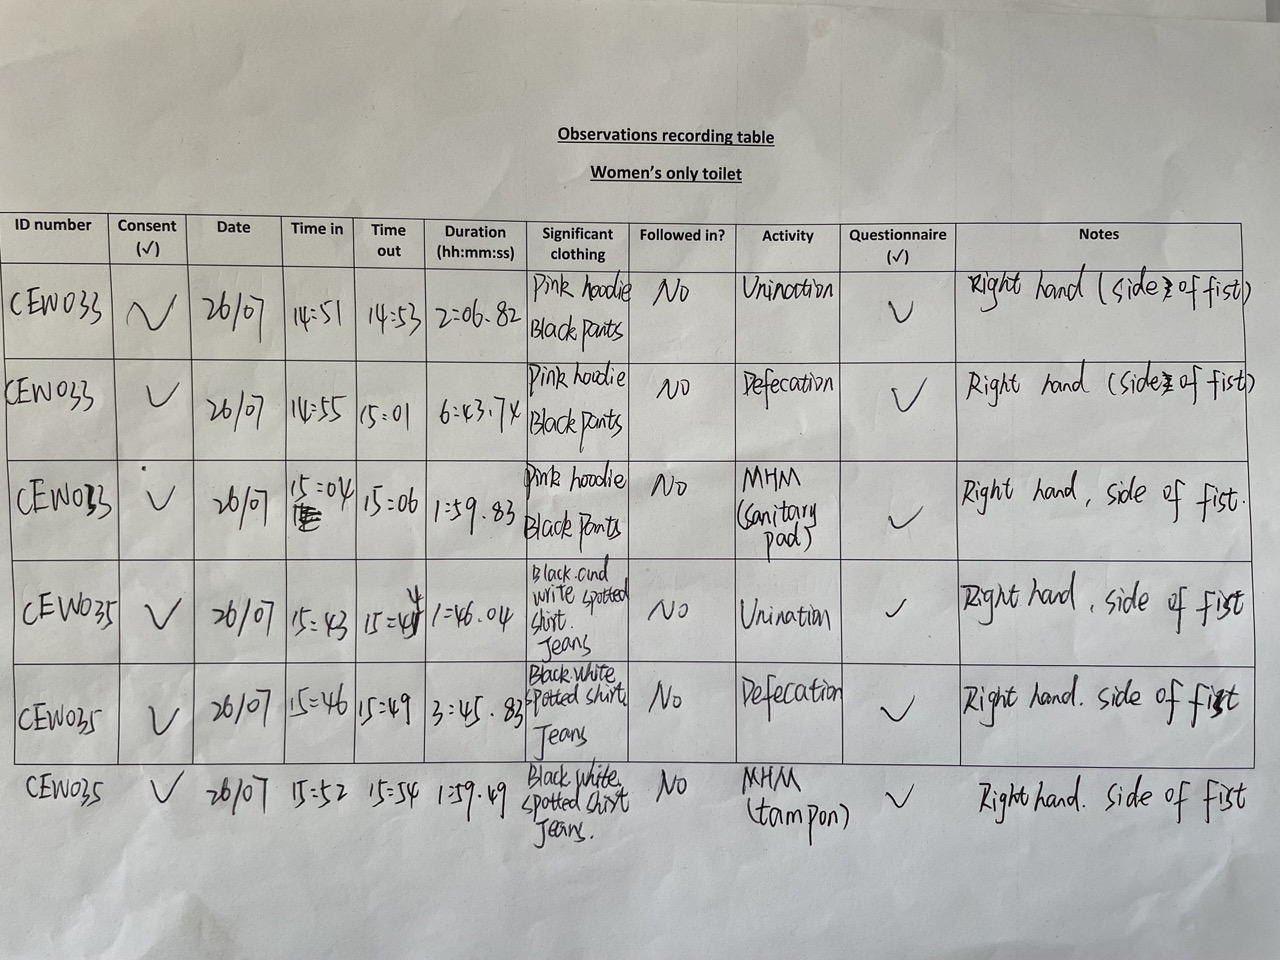 Observations recording table
Women's only toilet
ID number Consent (√) Date Time in Time out Duration (hh:mm:ss) Significant clothing Followed in? Activity Questionnaire (√) Notes
CEW033 √ 26/07 14:51 14:53 2:06.82 Pink hoodie Black pants No Urination √ Right hand (side of fist)
CEW033 √ 26/07 14:55 15:01 6:43.74 Pink hoodie Black pants No Defecation √ Right hand (side of fist)
CEW033 √ 26/07 15:04 15:06 1:59.83 Pink hoodie Black pants No MHM (sanitary pad) √ Right hand, side of fist.
CEW035 √ 26/07 15:43 15:44 1:46.04 Black and write spotted shirt. Jeans No Urination √ Right hand, side of fist
CEW035 √ 26/07 15:46 15:49 3:45.83 Black.white spotted shirt Jeans No Defecation √ Right hand. side of fist
CEW035 √ 26/07 15:52 15:54 1:59.49 Black white spotted shirt Jeans. No MHM (tampon) √ Right hand. side of fist